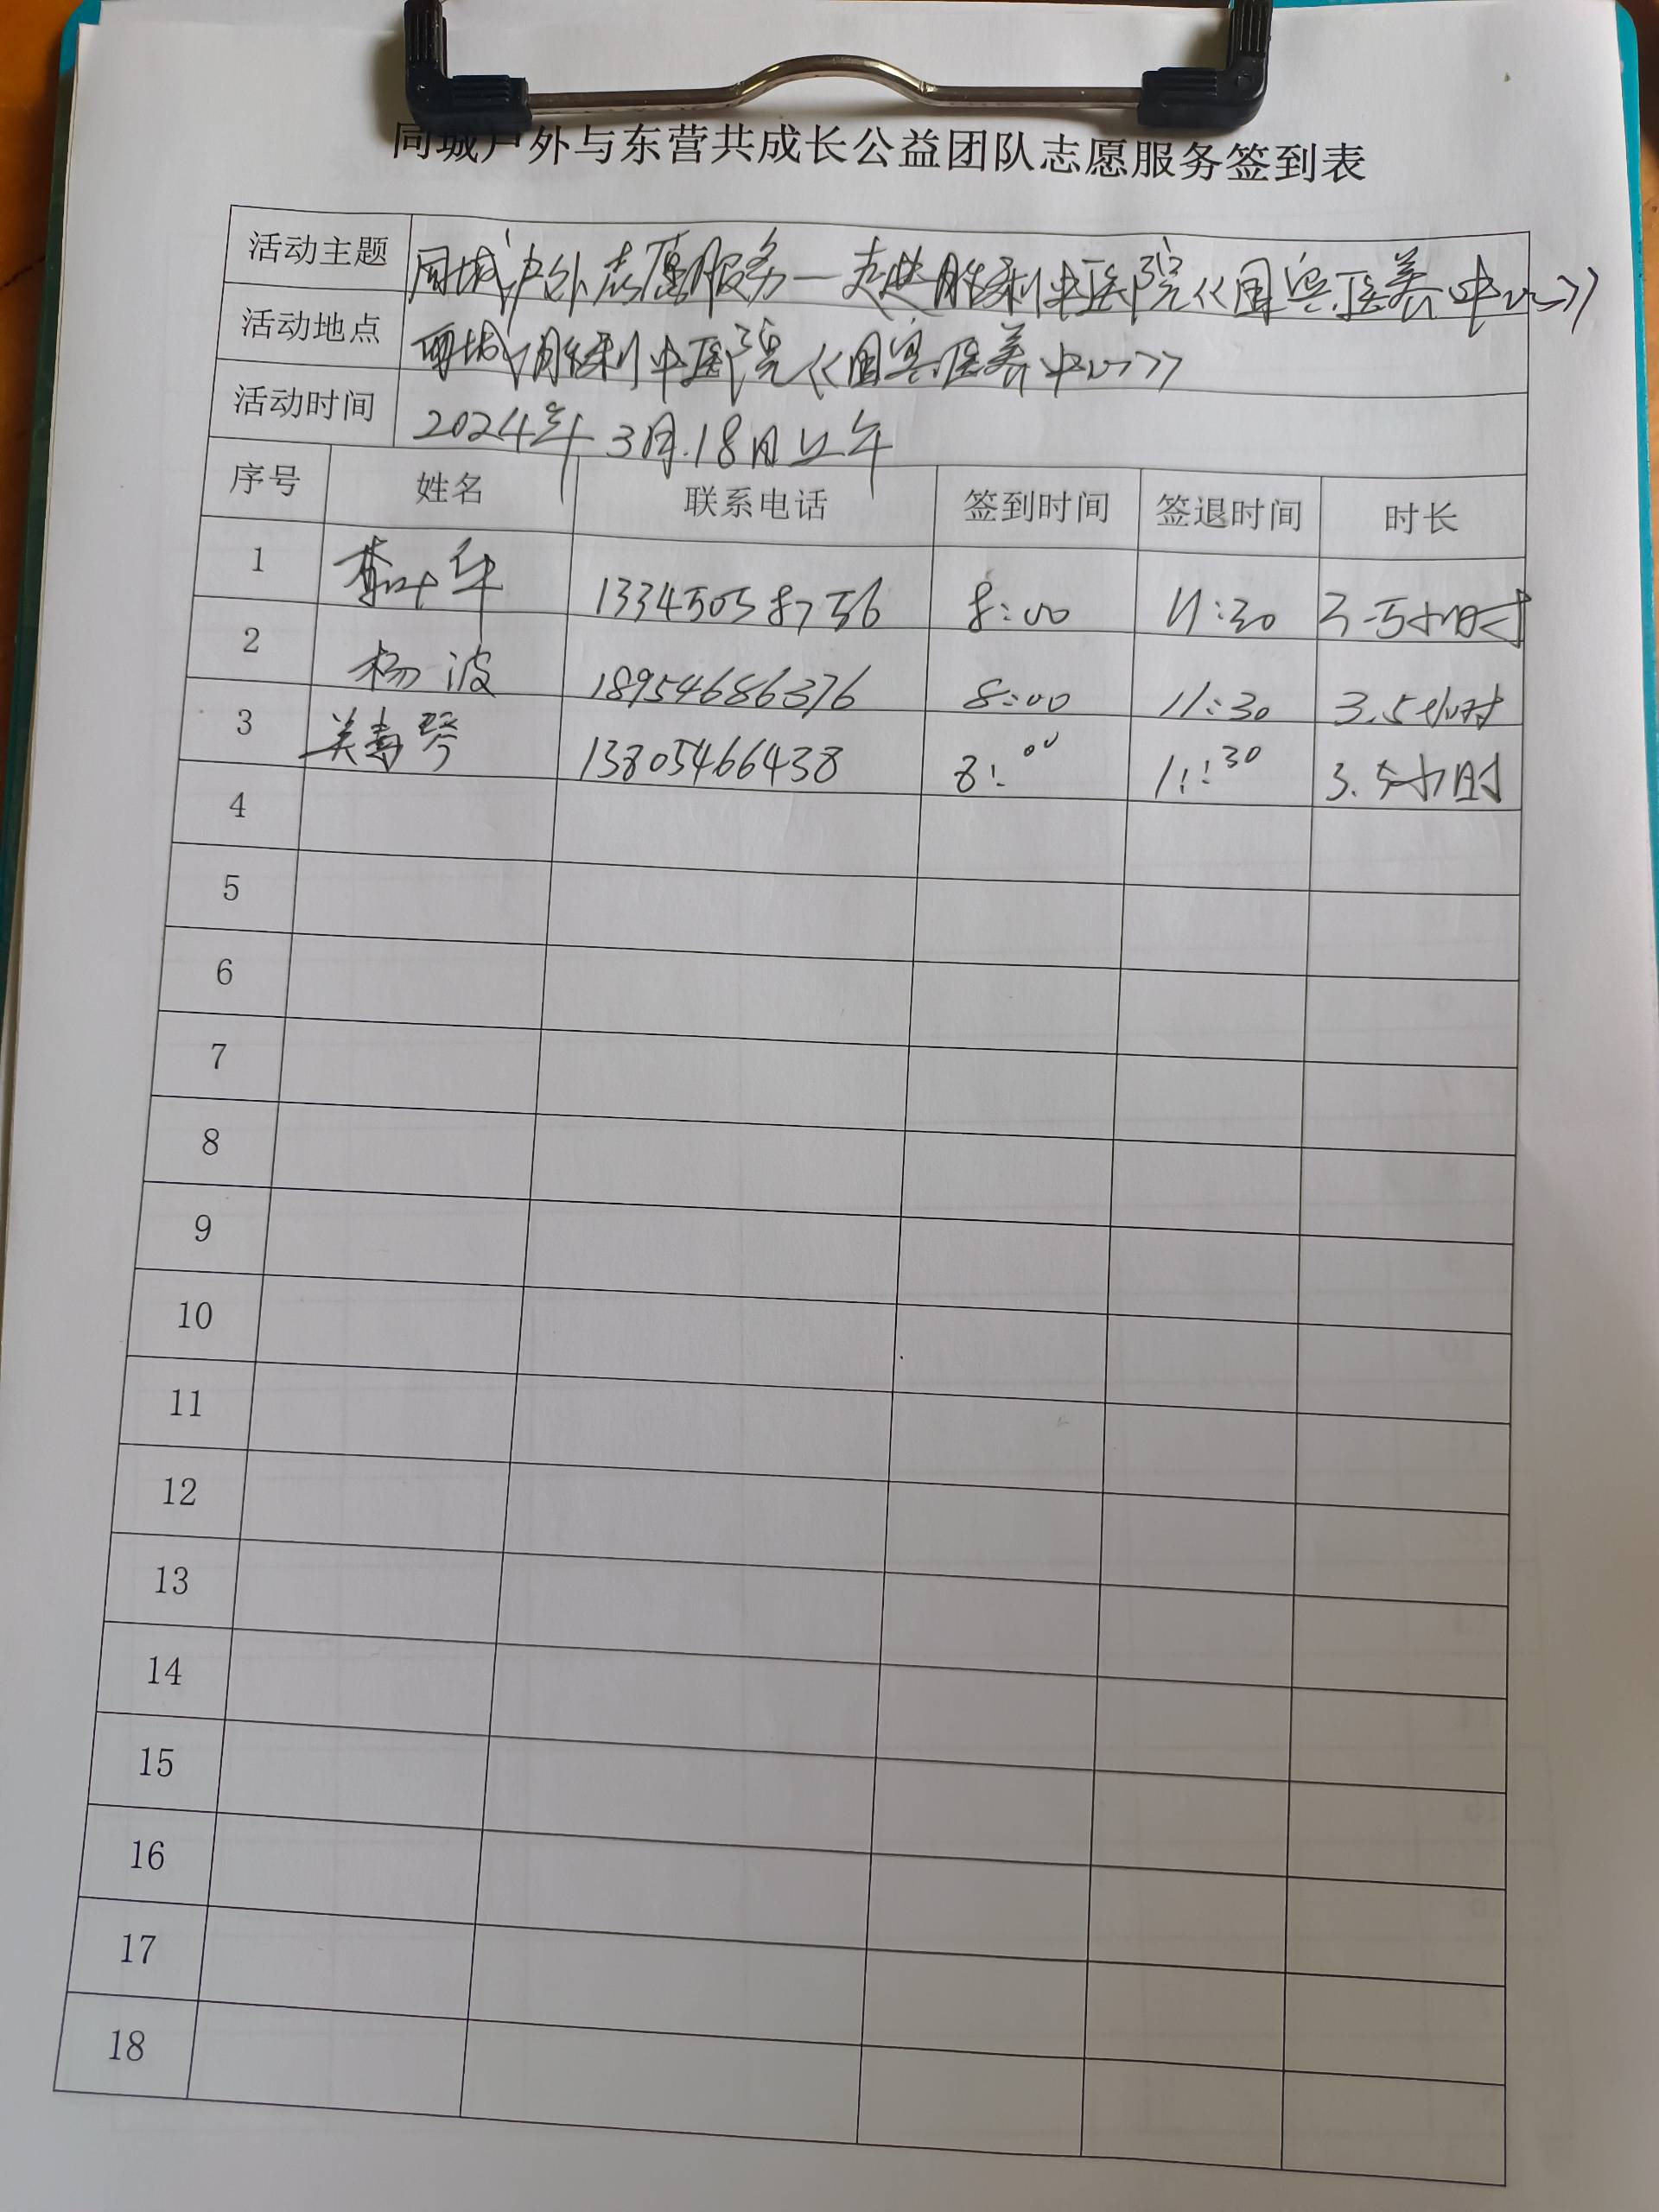 同城户外与东营共成长公益团队志愿服务签到表
活动主题 同城户外志愿服务一走进胜利中医院《国宾医养中心》
活动地点 西城胜利中医院《国宾医养中心》
活动时间 2024年3月.18日上午
序号 姓名 联系电话 签到时间 签退时间 时长
1 13345058756 8:00 11:30 3.5小时
2 杨波 18954686376 8:00 11:30 3.5小时
3 13805466438 8:00 11:30 3.5小时
4
5
6
7
8
9
10
11
12
13
14
15
16
17
18